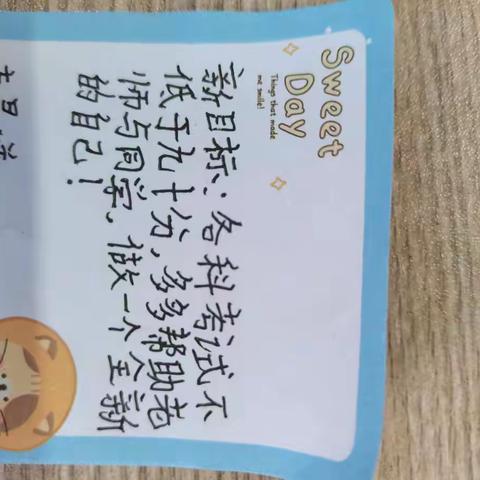 Sweet
Day
Things that made
me smile!
新目标：各科考试不
低于九十分，多多帮助老
师与同学，做一个全新
的自己！